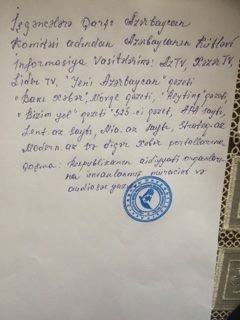 İşgəncələrə Qarşı Azərbaycan
Komitəsi adından Azərbaycanın Kütləvi
İnformasiya Vasitələrinə: Az TV, Xəzər TV,
Lider TV, "Yeni Azərbaycan" qəzeti
"Bakı Xəbər", Növqe qəzeti, "Reytinq" qəzeti,
"Bizim yol" qəzeti "525-ci qəzet, APA saytı,
Lent.az saytı, Mia.az saytı, Strateq.az
Modern.az və digər xəbər portallarına
Qoşma: Respublikanın aidiyyatı orqanları
na ünvanlanmış müraciət və
audio